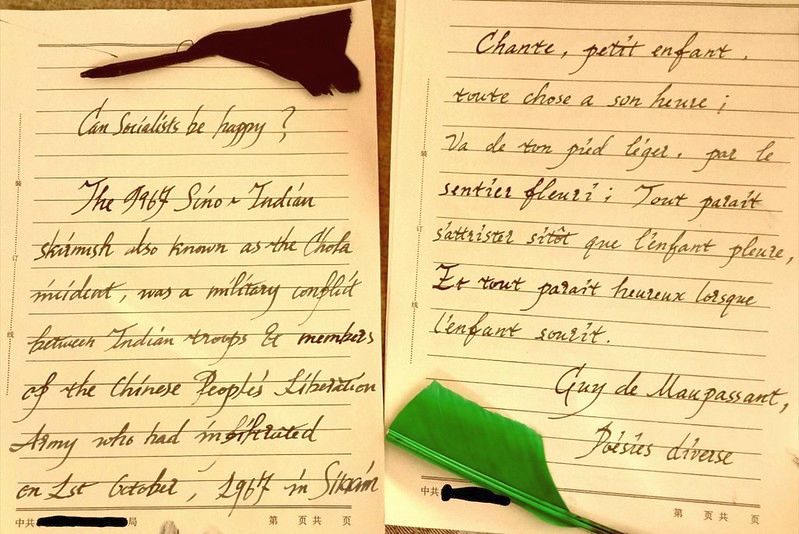 Can Socialists be happy ?
The 1967 Sino - Indian
skirmish also known as the Chola
incident, was a military conflict
between Indian troops & members
of the Chinese People's Liberation
Army who had infiltrated
on 1st October, 1967 in Sikkim
装
订
线
中共 局 第 页 共 页
Chante, petit enfant,
toute chose a son heure ;
Va de ton pied léger, par le
sentier fleuri ; Tout parait
s'attrister sitôt que l'enfant pleure,
Et tout parait heureux lorsque
l'enfant sourit.
Guy de Maupassant,
Poésies diverse
装
订
线
中共 第 页 共 页